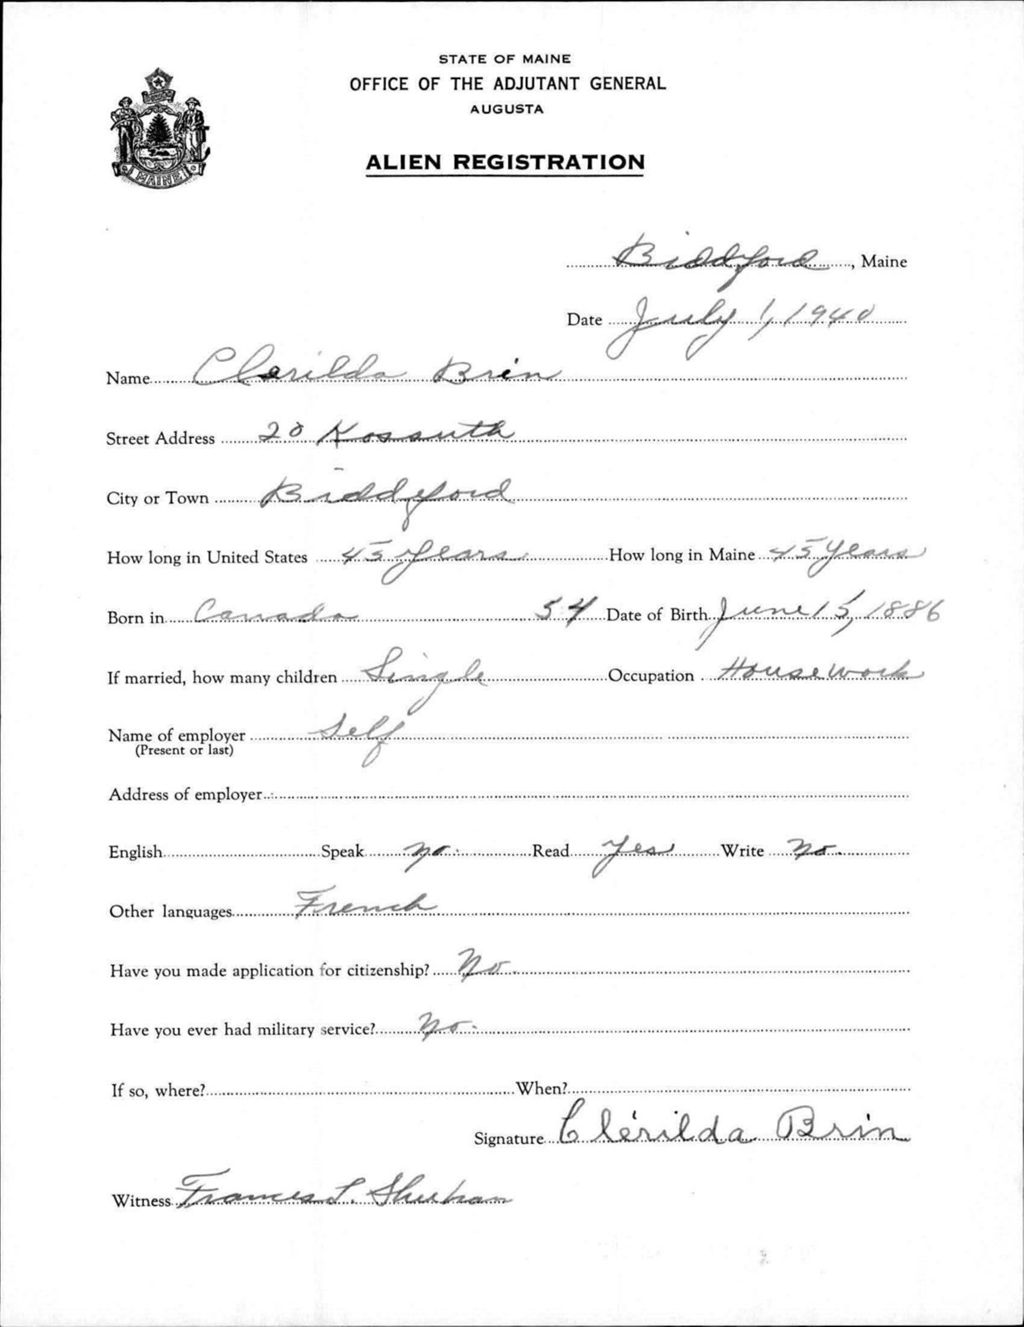 STATE OF MAINE
OFFICE OF THE ADJUTANT GENERAL
AUGUSTA
ALIEN REGISTRATION
MAINE
Biddeford, Maine
Date July 1, 1940
Name Clerilda Brin
Street Address 20 Kossuth
City or Town Biddeford
How long in United States 45 years How long in Maine 45 years
Born in Canada 54 Date of Birth June 15, 1886
If married, how many children Single Occupation Housework
Name of employer Self
(Present or last)
Address of employer
English Speak No. Read Yes Write No.
Other languages French
Have you made application for citizenship? No.
Have you ever had military service? No.
If so, where? When?
Signature Clérilda Brin
Witness Frances L. Sheehan